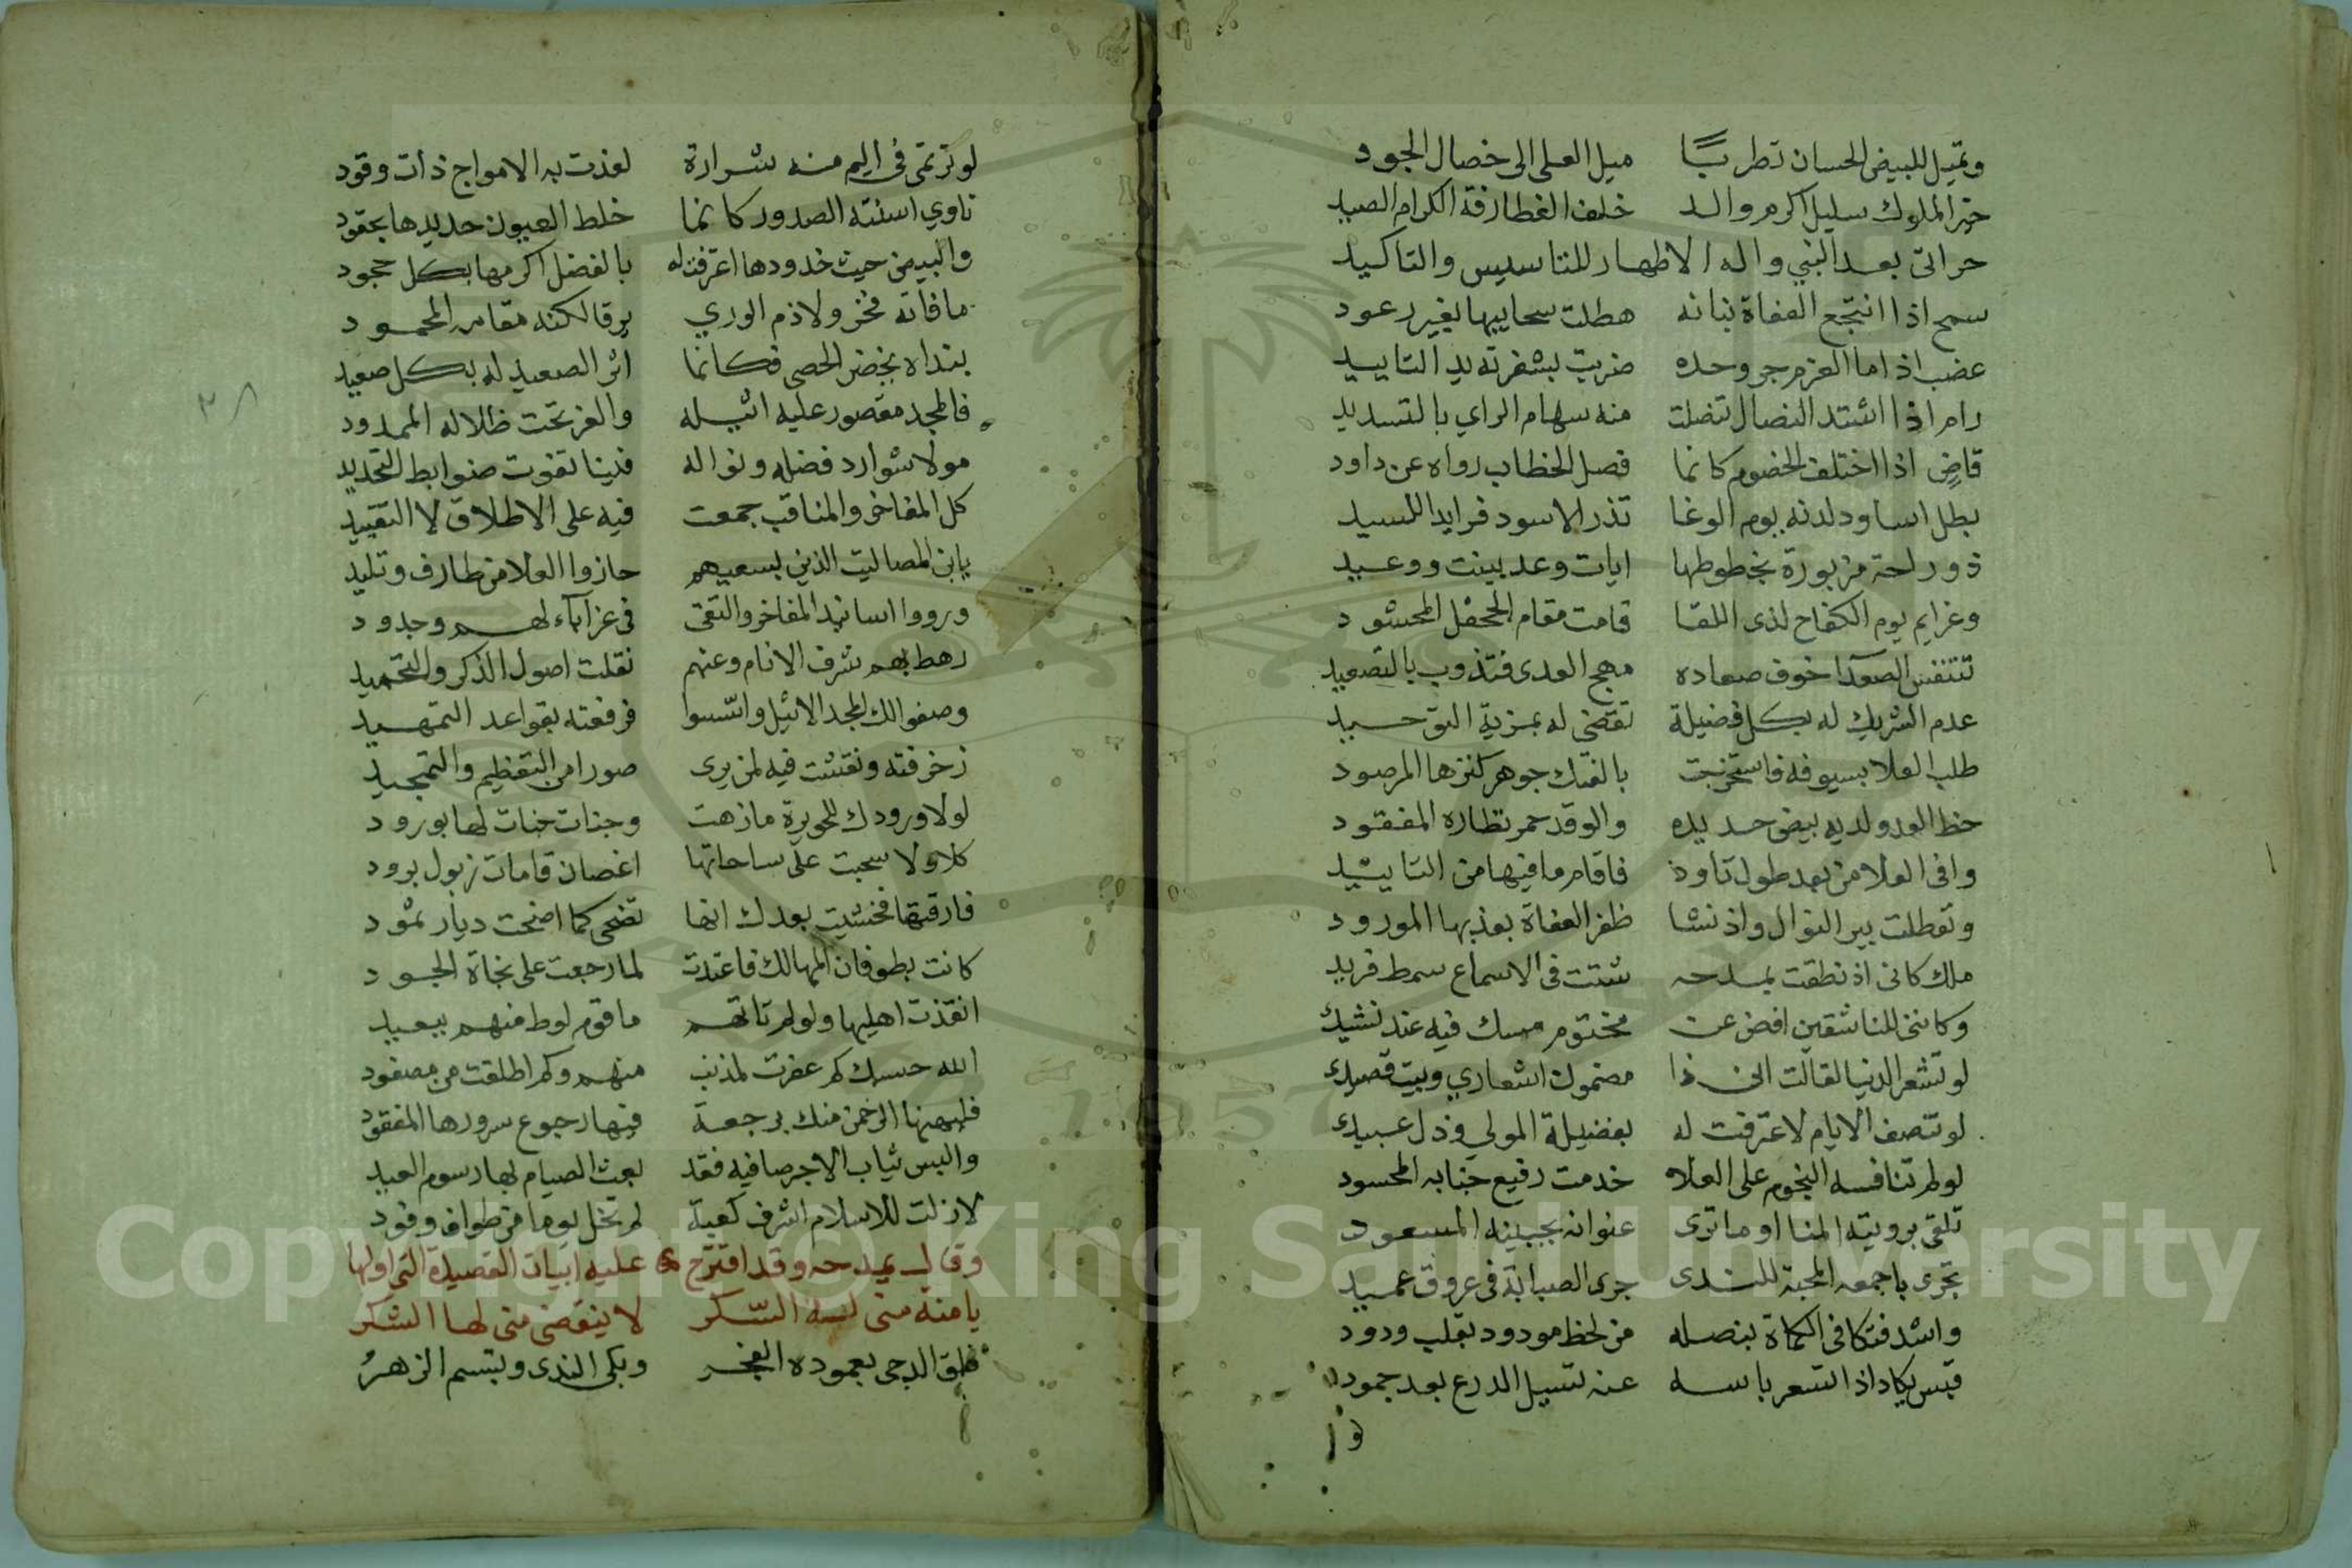 وتميل للبيض الحسان تطربًا ميل العلى الى خصال الجود
خير الملوك سليل اكرم والد خلف الغطارفة الكرام الصيد
حر اتى بعد النبي واله الاظهار للتاسيس والتاكيد
سمح اذا انتجع العفاة بنانه هطلت سحايبها بغير رعود
عضب اذا ما العزم جر وحده ضربت بشفرته يد التاييد
رام اذا اشتد النضال تنضلت منه سهام الراي بالتسديد
قاضٍ اذا اختلف الخصوم كانما فصل الخطاب رواه عن داود
بطل اساود لدنه يوم الوغا تذر الاسود فرايد السيد
ذو راحة مزبورة بخطوطها ايات وعد بينت ووعيد
وعزايم يوم الكفاح لذى اللقا قامت مقام الجحفل المحشود
تتنفس الصعدا خوف صعاده مهج العدى فتذوب بالتصعيد
عدم الشريك له بكل فضيلة تقضى له بمزية التوحيد
طلب العلا بسيوفه فاستخرجت بالفتك جوهر كنزها المرصود
حظ العدو لديه بيض حديده والوفد حمر نظاره المفقود
وافى العلا من بعد طول تاود فاقام ما فيها من التاييد
وتعطلت بير النوال واذ نشا ظفر العفاة بعذبها المورود
ملك كانى اذ نطقت بمدحه شتت فى الاسماع سمط فريد
وكاننى للناشقين افض عن مختوم مسك فيه عند نشيدى
لو تشعر الدنيا لقالت ان ذا مضمون اشعاري وبيت قصيدى
لو تنصف الايام لاعترفت له بفضيلة المولي وذل عبيدى
لو لم تنافسه النجوم على العلا خدمت رفيع جنابه المحسود
تلقى برويته المنا او ما ترى عنوانه بجبينه المسعود
تجرى باجمعه المحبة للندى جرى الصبابة فى عروق عميد
واشد فتكا فى الكماة بنصله من لحظ مودود بقلب ودود
قبس يكاد اذا تسعر باسه عنه تسيل الدرع بعد جمود
لو
لو ترتمى فى اليم منه شرارة لغدت به الامواج ذات وقود
ناوي اسنته الصدور كانما خلط العيون حديدها بحقود
والبيض من حيث خدودها اعترفت له بالفضل اكرمها بكل جحود
ما فاته فخر ولا ذم الوري يرقا لكنه مقامه المحمود
بنداه يخضر الحصى فكانما اثر الصعيد له بكل صعيد
فالمجد مقصور عليه اثيله والعز تحت ظلاله الممدود
مولا شوارد فضله ونواله فينا تفوت ضوابط التحديد
كل المفاخر والمناقب جمعت فيه على الاطلاق لا التقييد
يابن المصاليت الذين بسعيهم حازوا العلا من طارف وتليد
ورووا اسانيد المفاخر والتقى فى عز آباء لهم وجدود
رهط بهم شرف الانام وعنهم نقلت اصول الذكر والتحميد
وصفوا لك المجد الاثيل واسسوا فرفعته بقواعد التمهيد
زخرفته ونقشت فيه لمن يرى صورا من التعظيم والتمجيد
لولا ورودك للحويزة ما زهت وجنات جنات لها بورود
كلا ولا سحبت على ساحاتها اغصان قامات ذيول برود
فارقتها فخشيت بعدك انها تضحى كما اضحت ديار ثمود
كانت بطوفان المهالك فاغتدت لما رجعت على نجاة الجود
انقذت اهليها ولو لم تاتهم ما قوم لوط منهم ببعيد
الله حسبك كم غفرت لمذنب منهم وكم اطلقت من مصفود
فليهنها الرحمن منك برجعة فيها رجوع سرورها المفقود
والبس ثياب الاجر صافيه فقد بعث الصيام بها رسوم العيد
لازلت للاسلام اشرف كعبة لم تخل يوما من طواف وفود
وقال يمدحه وقد اقترح عليه ابيات القصيدة التى اولها
يا منة منى السكر لا ينقضى منى لها الشكر
فلق الدجى بعموده الفجر وبكى الندى وبتسم الزهرُ
٣٨
Copyright © King Saud University
1957